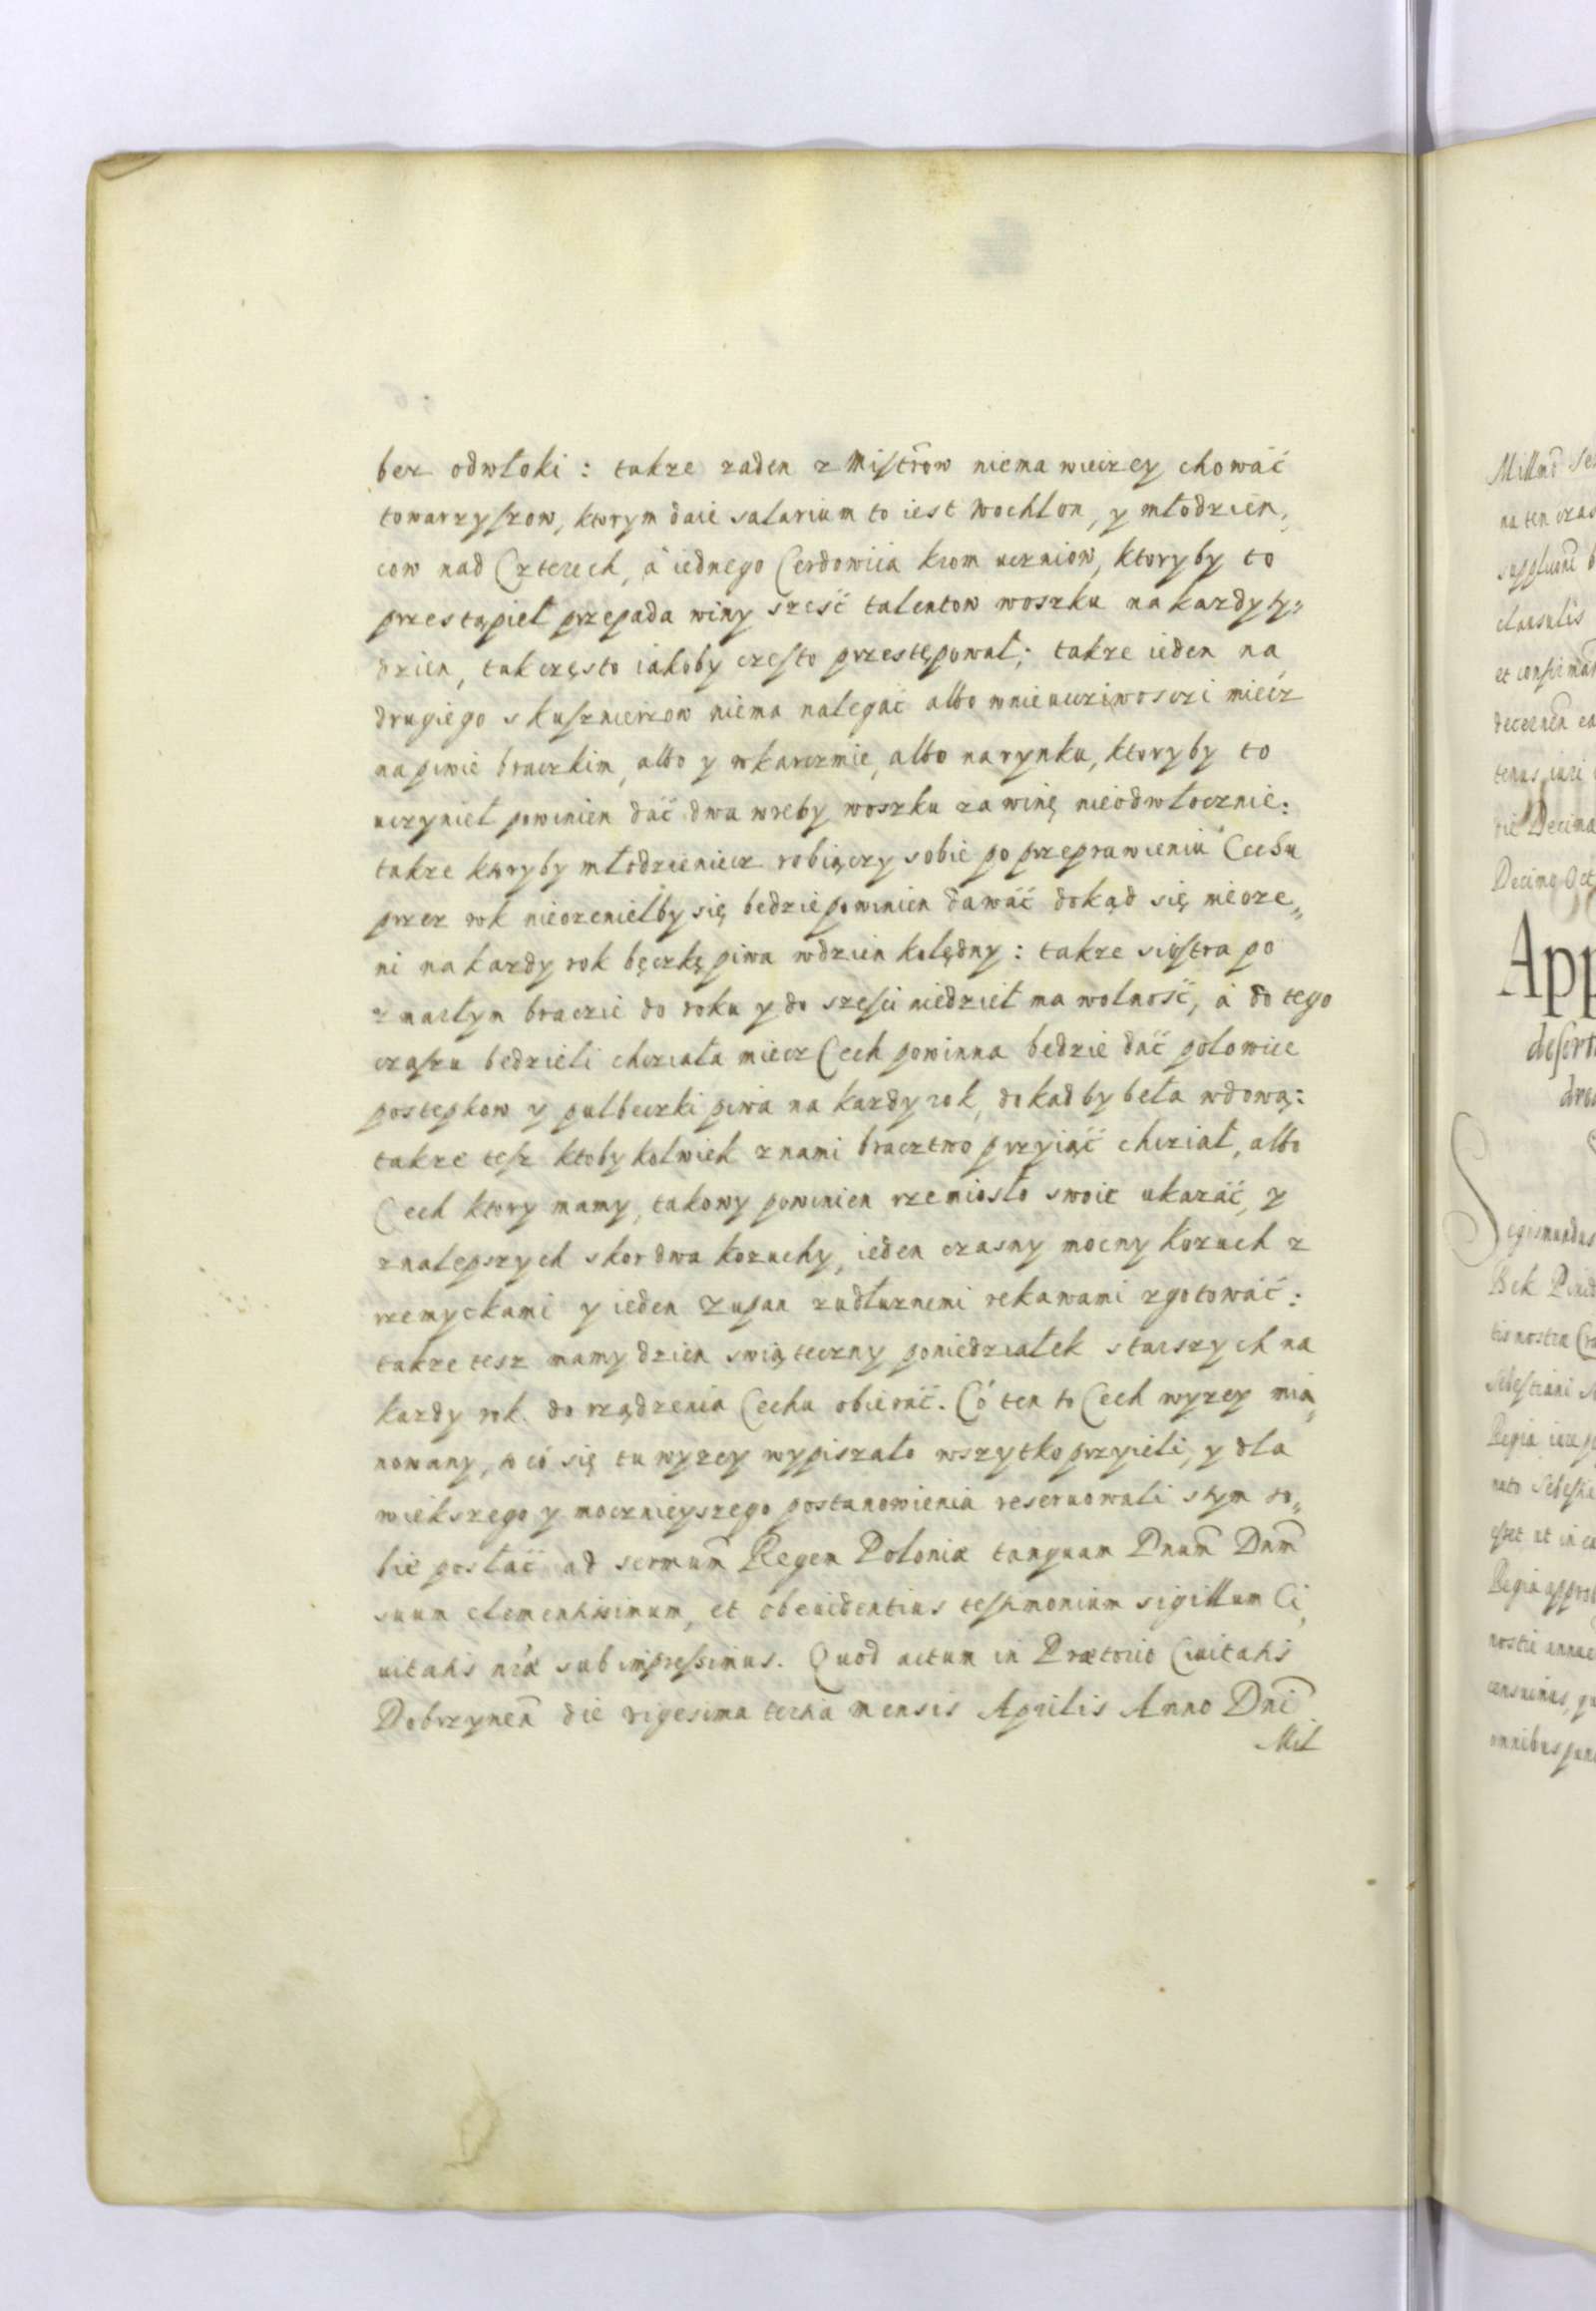 bez odwłoki : takze zaden z Mistrow niema wieczey chować
towarzyszow, ktorym daie salarium to iest Wochlon, y młodzien,
cow nad Czterech, a iednego Cerdowiia krom uczniow, ktoryby to
przestąpieł przepada winy sześć talentow woszku na kazdy ty=
dzien, tak często iakoby często przestępował; takze ieden na
drugiego s kusznierzow niema nalegać albo wnieuczciwosczi miecz
na piwie braczkim, albo y wkarczmie, albo na rynku, ktoryby to
uczynieł powinien dać dwa wreby woszku za winę nieodwłocznie:
takze ktoryby młodzieniecz robiączy sobie po przeprawieniu Cechu
przez rok nieozeniełby się bedzie powinien dawać dokąd się nieoze„
ni na kazdy rok bęczkę piwa wdzien kolędny : takze siostra po
zmarłym braczie do roku y do sześci niedzieł ma wolność, a do tego
czaszu bedzieli chcziała miecz Cech powinna bedzie dać połowice
postepkow y pułbeczki piwa na kazdy rok, dokad by beła wdową:
takze tesz ktoby kolwiek z nami bracztwo przyiąć chcział, albo
Cech ktory mamy, takowy powinien rzemiosło swoie ukazać, y
z nalepszych skor dwa kozuchy, ieden czasny mocny kozuch z
rzemyckami y ieden Zupan zudłuznemi rekawami zgotować :
takze tesz mamy dzien swiąteczny poniedziałek starszych na
kazdy rok do rządzenia Cechu obierać. Co ten to Cech wyzey mia„
nowany, to co się tu wyzey wypiszało wszytko przyieli, y dla
wiekszego y mocznieyszego postanowienia reseruowali s tym so„
bie posłać ad sermum Regem Poloniæ tanquam Dnum Dnm
suum clementissimum, et ob euidentius testimonium sigillum Ci„
uitatis nræ sub impressimus. Quod actum in Prætorio Ciuitatis
Dobrzynen die vigesima tertia mensis Aprilis Anno Dni
Mil
Millmo
na ten czas
clausulis
et confirmar
tenus iuri
die Decima
Decimo Oct
App
desert
Segismundus
tis nostræ
Regia
nostri annue
omnibus